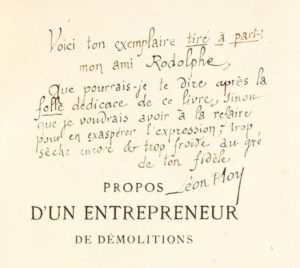 Voici ton exemplaire tiré à part,
mon ami Rodolphe,
Que pourrais-je te dire après la
folle dédicace de ce livre, sinon
que je voudrais avoir à la refaire
pour en exaspérer l'expression; trop
sèche encore & trop froide du gré
de ton fidèle
Léon Bloy
PROPOS
D'UN ENTREPRENEUR
DE DÉMOLITIONS